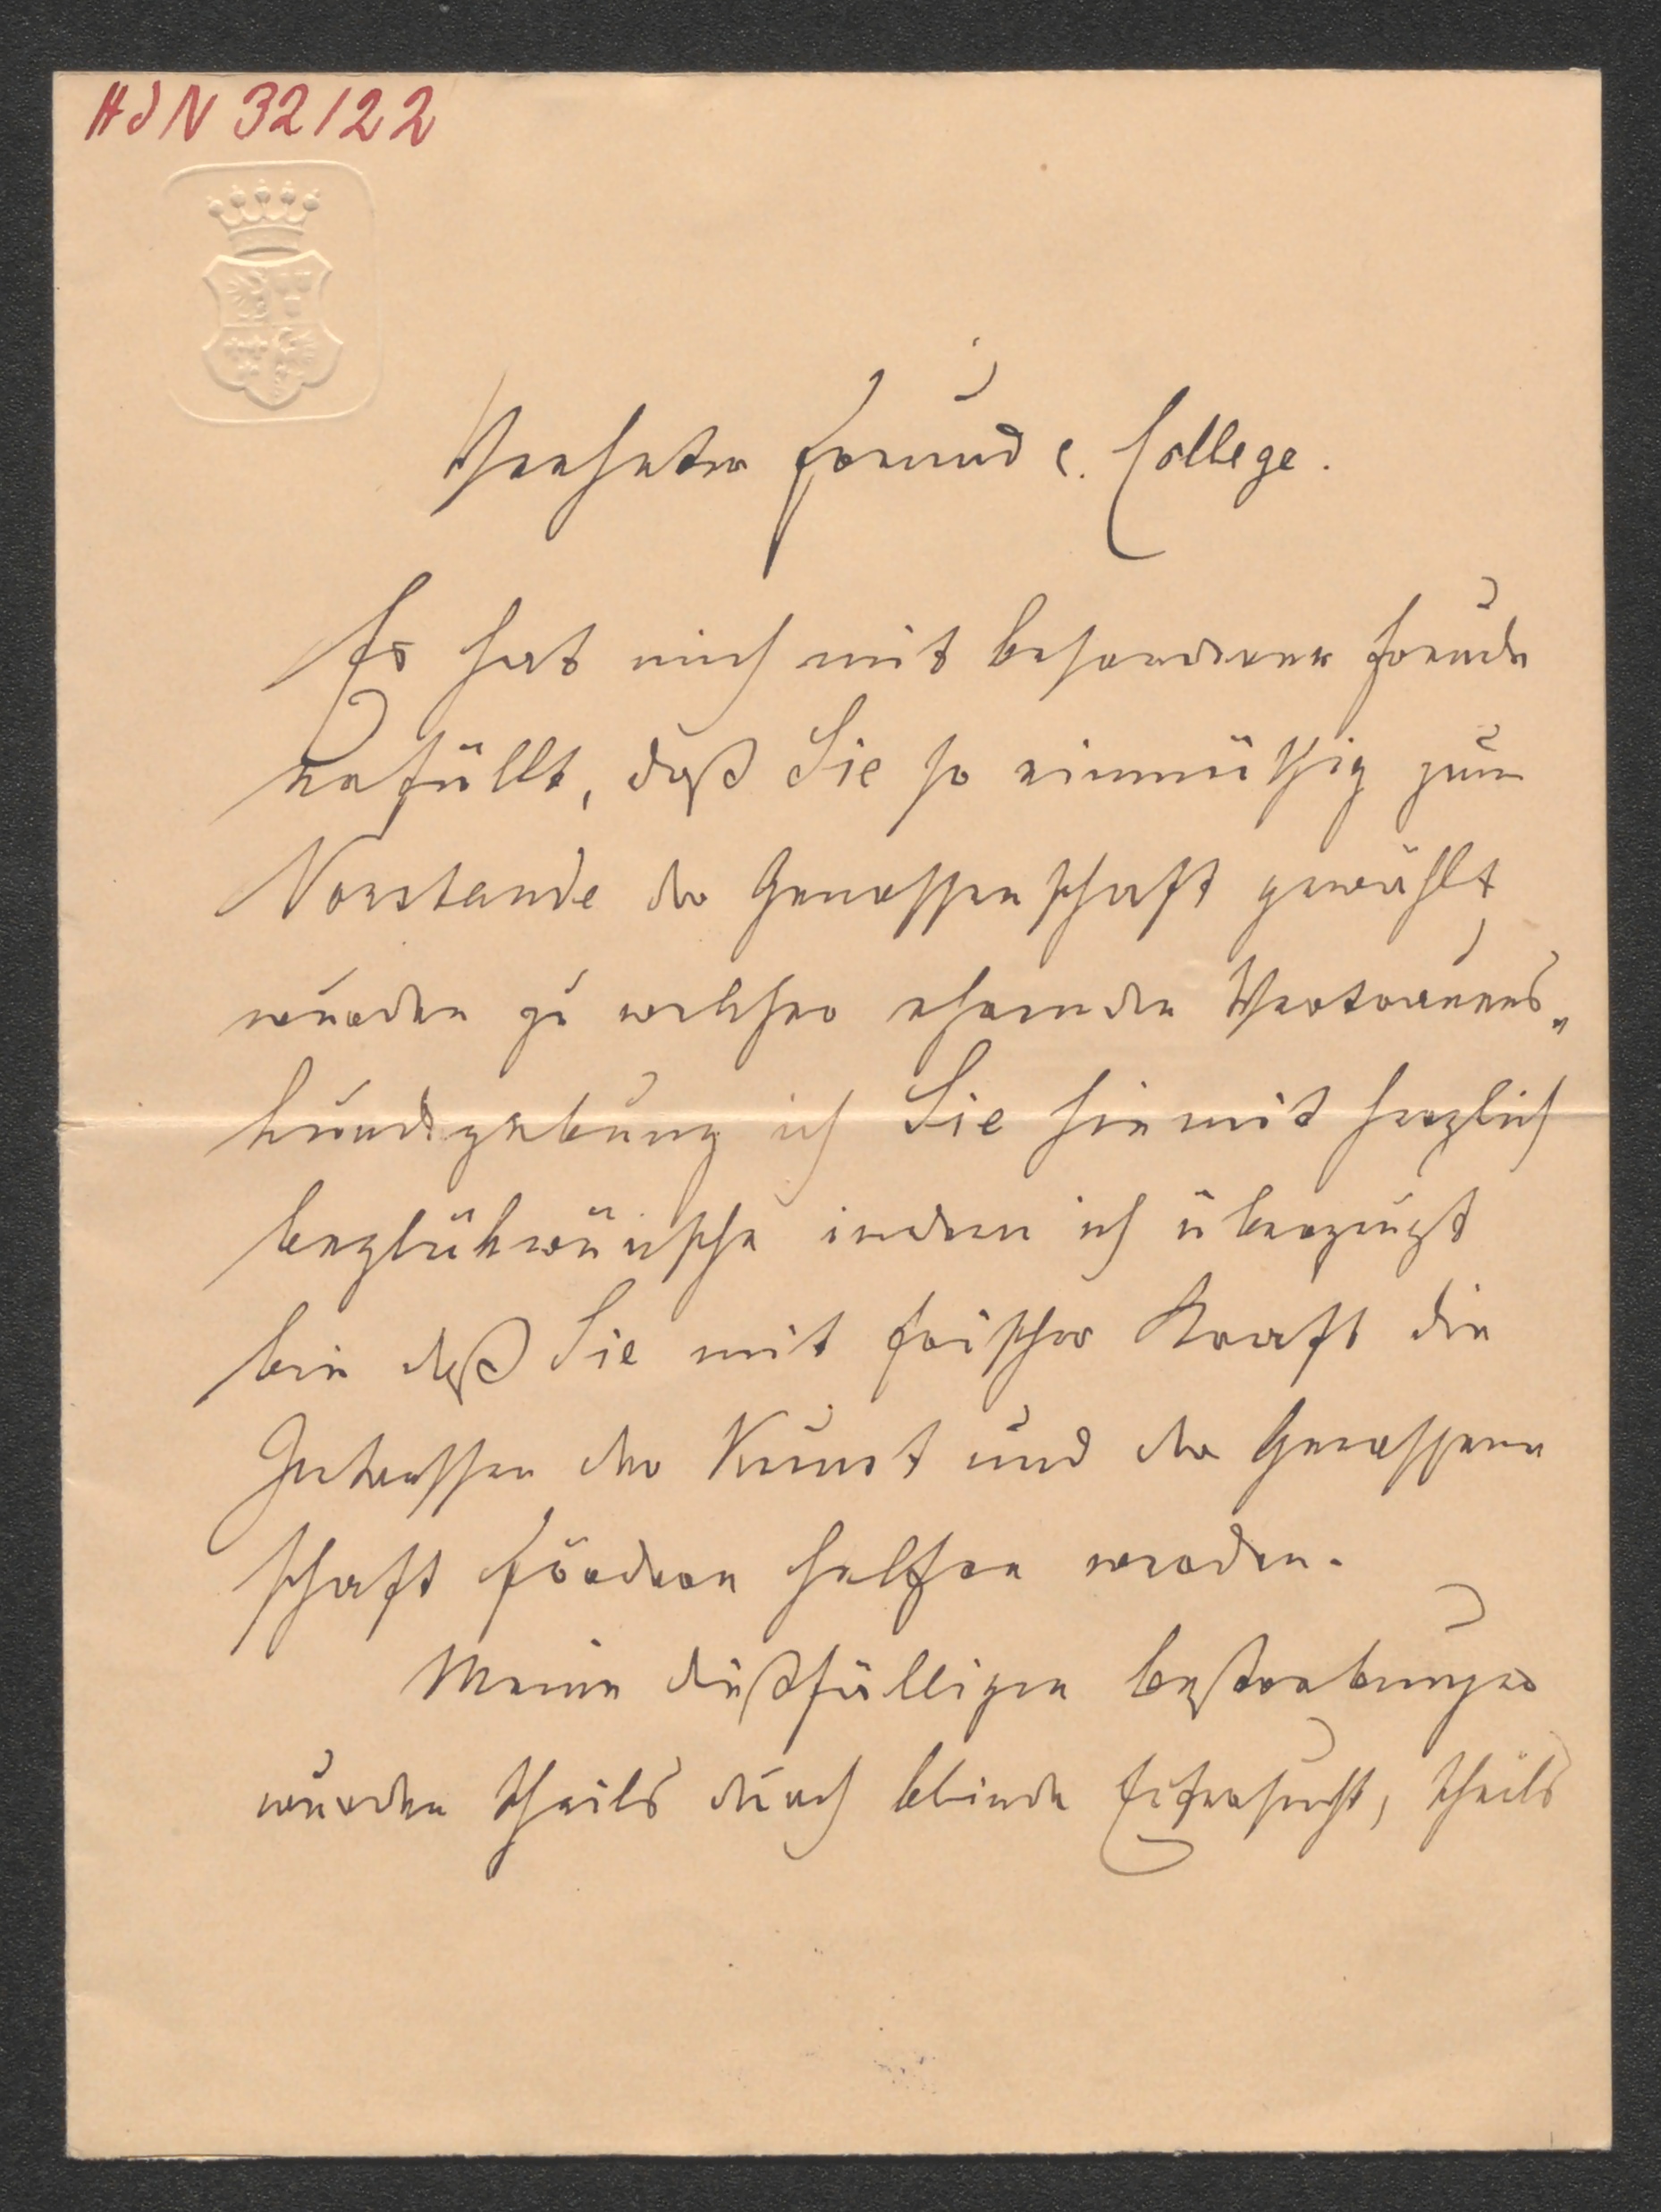 HIN 32/22
Verehrter Freund u. College.
Es hat mich mit besonderer Freude
erfüllt, daß Sie so einmüthig zum
Vorstande der Genossenschaft gewählt
wurden zu welcher ehrenden Vertrauens„
kundgebung ich Sie hiemit herzlich
beglückwünsche indem ich überzeugt
bin daß Sie mit frischer Kraft die
Interessen der Kunst und der Genossen
schaft fördern helfen werden.
Meine dießfälligen Bestrebungen
wurden theils durch blinde Eifersucht, theils